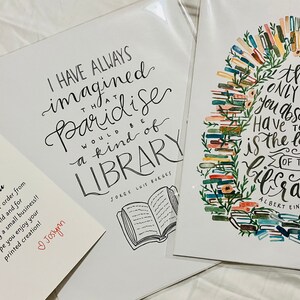 I HAVE ALWAYS
imagined
THAT
paridise
WOULD BE
a kind of
LIBRARY
JORGE LUIS BORGES
order from
and for
a small business!!
you enjoy your
printed creation!
ONLY
HAVE
is the
OF
ALBERT